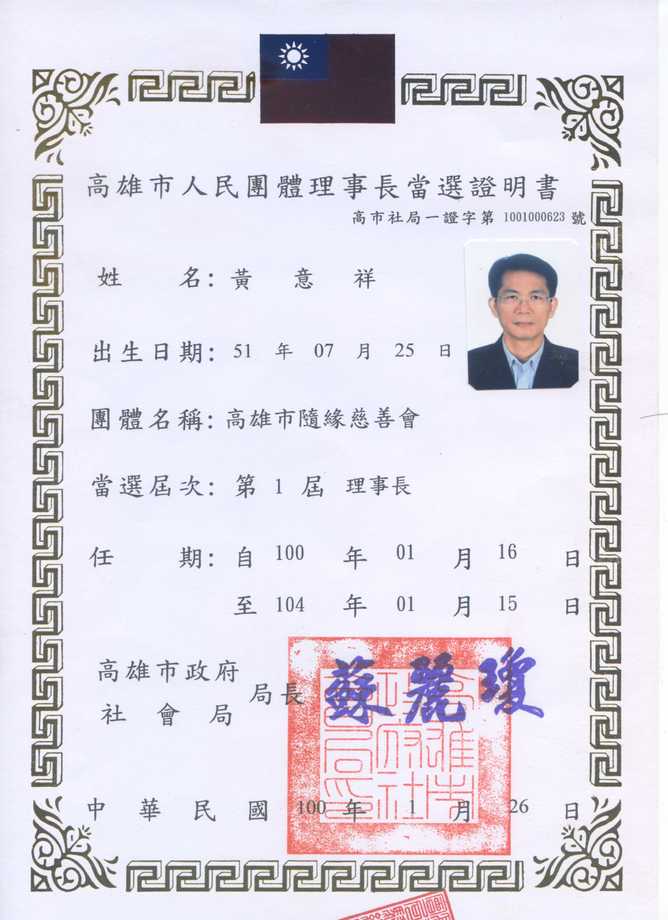 高雄市人民團體理事長當選證明書
高市社局一證字第 1001000623 號
姓名：黃意祥
出生日期：51 年 07 月 25 日
團體名稱：高雄市隨緣慈善會
當選屆次：第 1 屆 理事長
任期：自 100 年 01 月 16 日
至 104 年 01 月 15 日
高雄市政府
社會局
局長 蘇麗瓊
高雄市政府社會局印
中華民國 100 年 1 月 26 日